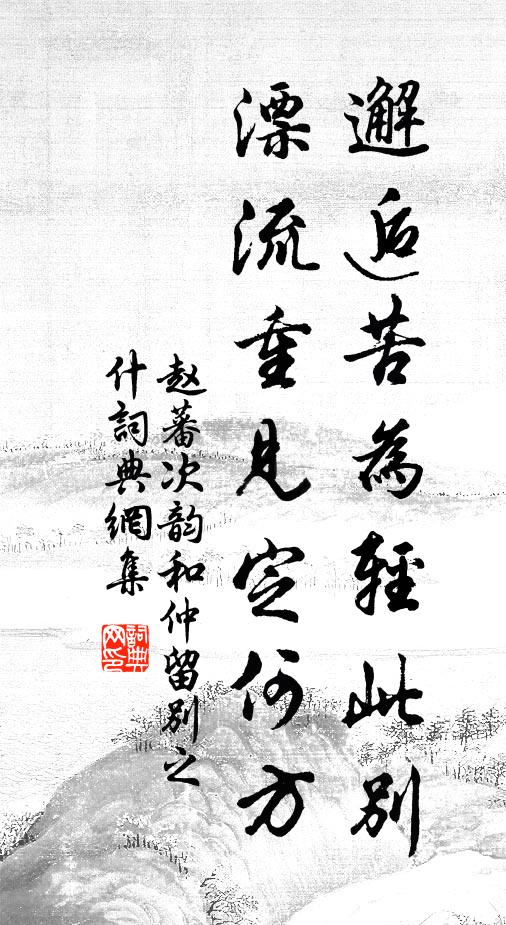 邂逅苦為輕此別
漂流重見定何方
赵蕃次韵和仲留别之
什詞典網集
詞典